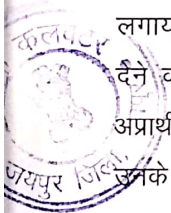 लगाय
देने व
अप्रार्थी
उनके
कलक्टर
जयपुर जिला